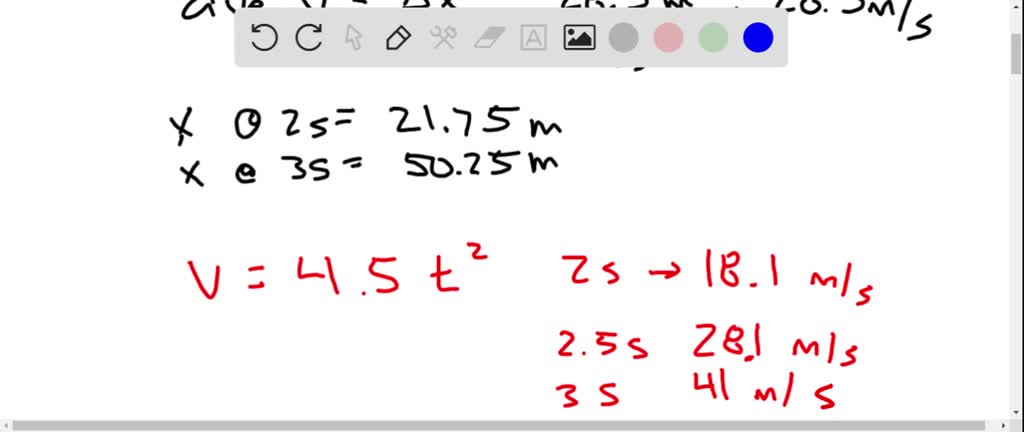 x @ 2s = 21.75 m
x @ 3s = 50.25 m
v = 4.5 t² 2s → 18.1 m/s
2.5s 28.1 m/s
3s 41 m/s